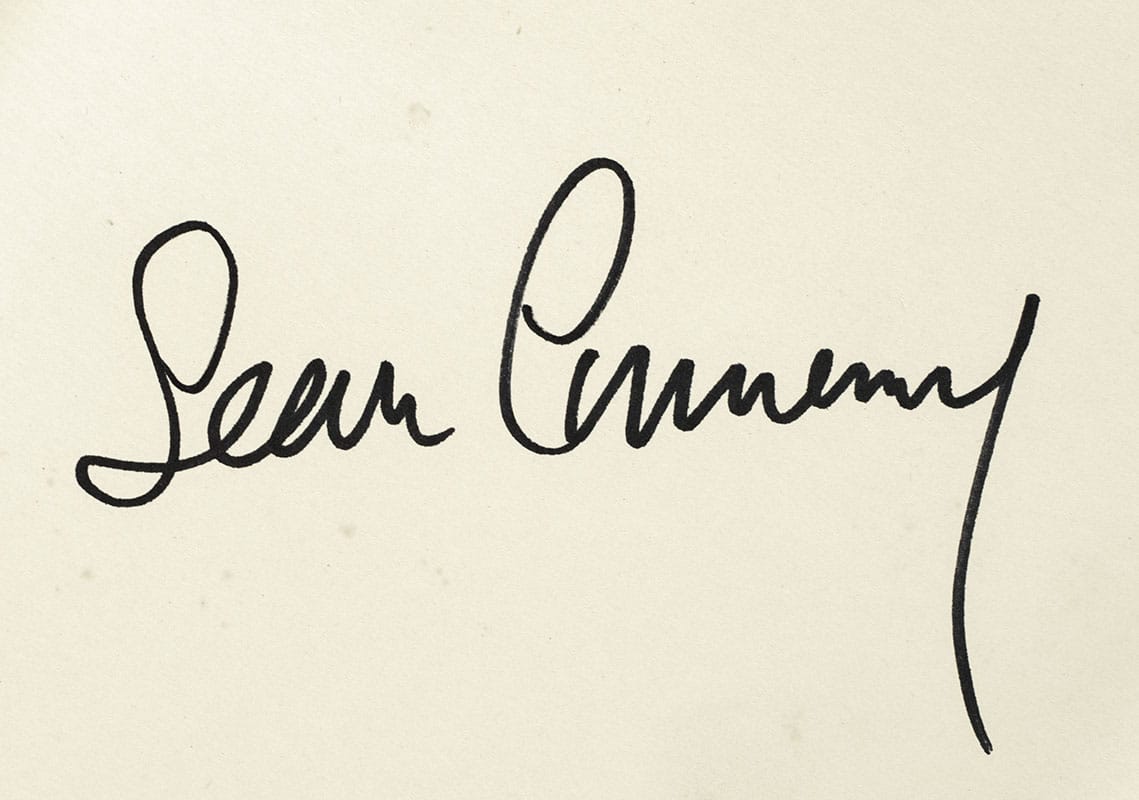 Sean Connery